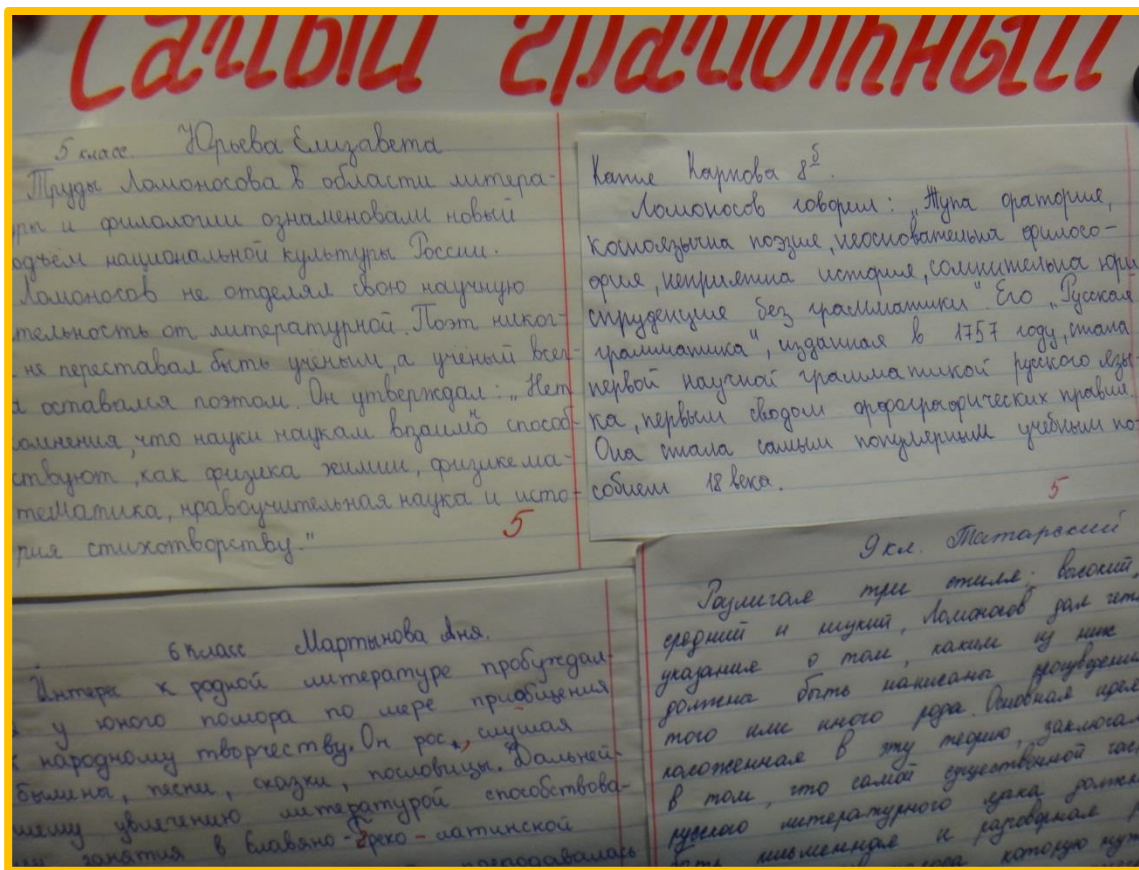 Самый грамотный
5 класс. Юрьева Елизавета
Труды Ломоносова в области литера-
ры и филологии ознаменовали новый
одъём национальной культуры России.
Ломоносов не отделял свою научную
тельность от литературной. Поэт никог-
не переставал быть учёным, а учёный всег-
а оставался поэтом. Он утверждал: „Нет
омнения, что науки наукам взаимно способ-
ствуют, как физика химии, физике ма-
тематика, нравоучительная наука и исто-
рия стихотворству."
5
Катя Карпова 8 б.
Ломоносов говорил: „Тупа оратория,
косноязычна поэзия, неосновательна филосо-
фия, неприятна история, сомнительна юри
спруденция без грамматики". Его „Русская
грамматика", изданная в 1757 году, стала
первой научной грамматикой русского язы-
ка, первым сводом орфографических правил.
Она стала самым популярным учебным по-
собием 18 века.
5
6 класс Мартынова Аня.
Интерес к родной литературе пробуждал-
я у юного помора по мере приобщения
к народному творчеству. Он рос, слушая
былины, песни, сказки, пословицы. Дальней-
шему увлечению литературой способствова-
ли занятия в Славяно-греко-латинской
преподавалась
9 кл. Татарский
Различая три стиля: высокий,
средний и низкий, Ломоносов дал чёт
указания о том, каким из них
должна быть написаны произведени
того или иного рода. Основная идея,
положенная в эту теорию, заключал
в том, что самой существенной част
русского литературного языка должн
быть письменная и разговорная р
которую